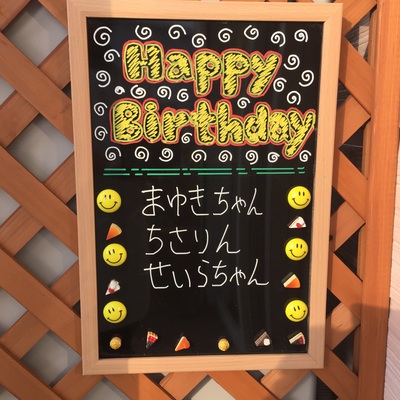 Happy
Birthday
まゆきちゃん
ちさりん
せいらちゃん